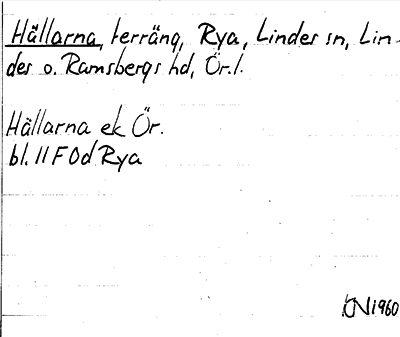 Hällarna, terräng, Rya, Lindes sn, Lin-
des o. Ramsbergs hd, Ör.l.
Hällarna ek Ör.
bl. 11 F 0d Rya
KN 1960